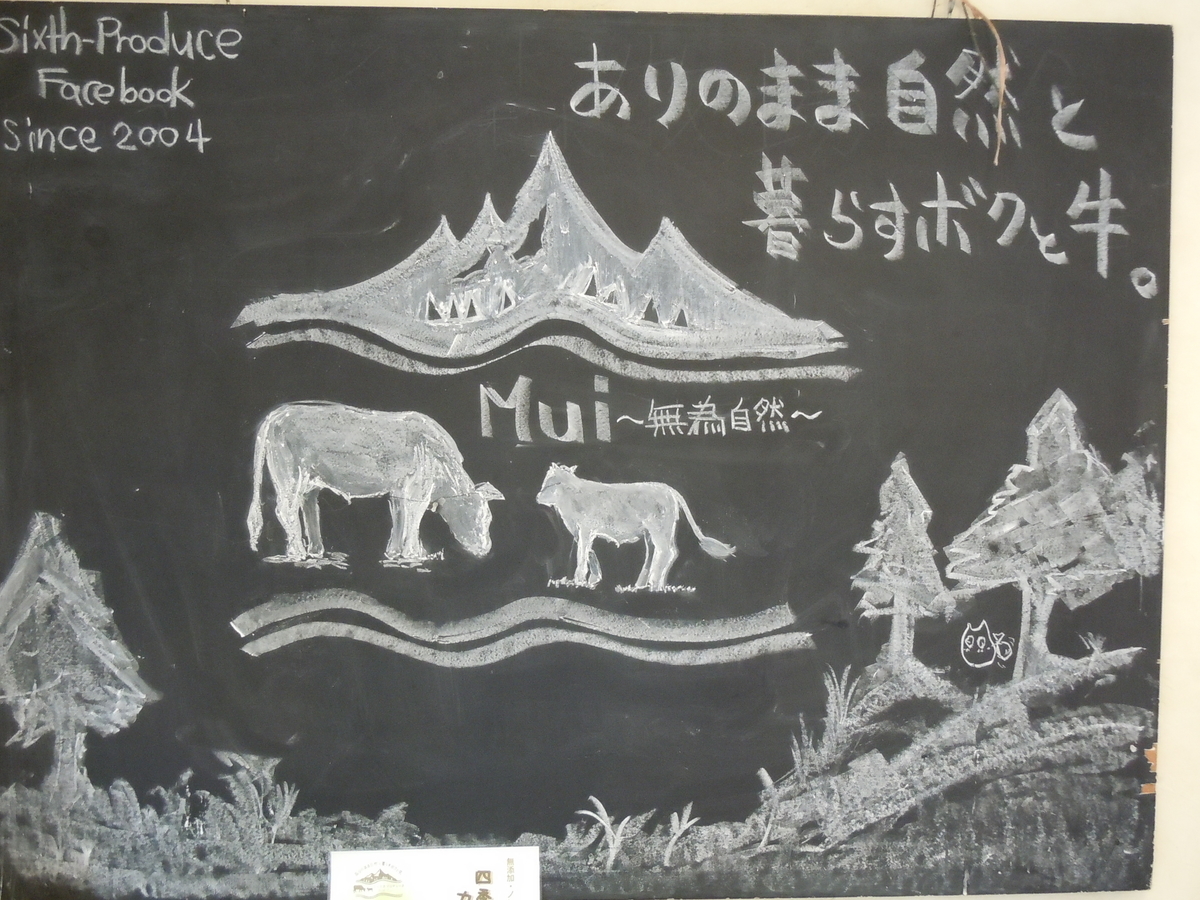 Sixth-Produce
Facebook
Since 2004
ありのまま自然と
暮らすボクと牛。
Mui ～無為自然～
無添加・ノ
四季